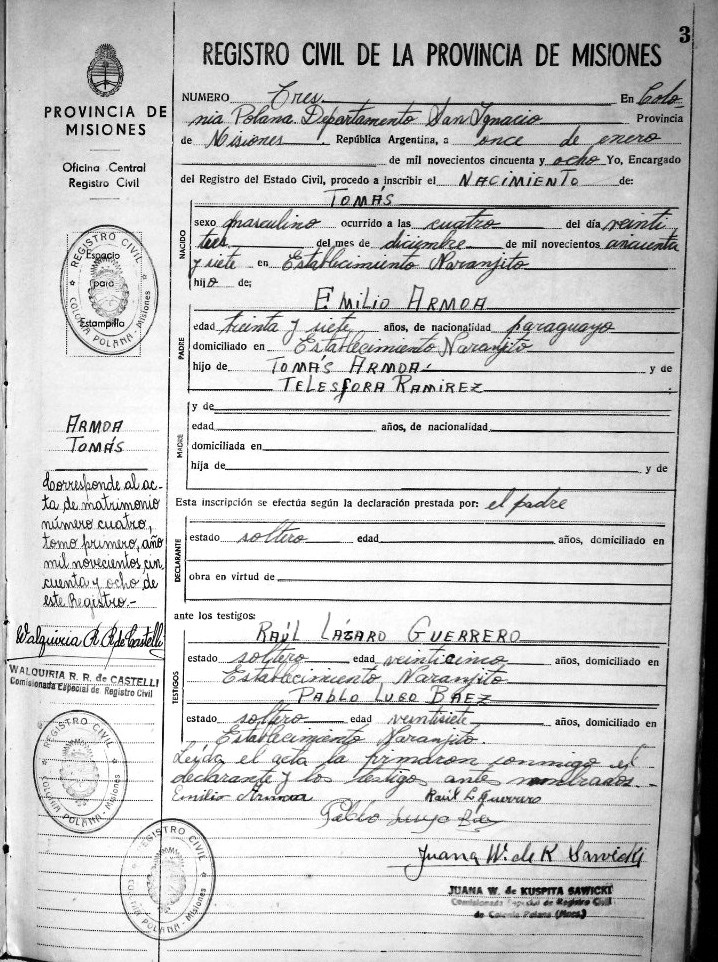 3
REGISTRO CIVIL DE LA PROVINCIA DE MISIONES
PROVINCIA DE
MISIONES
Oficina Central
Registro Civil
REGISTRO CIVIL
COLONIA POLANA - Misiones
Espacio
para
Estampilla
ARMOA
TOMÁS
Corresponde al ac-
ta de matrimonio
número cuatro,
tomo primero, año
mil novecientos cin
cuenta y ocho de
este Registro.-
Walquiria R. R. de Castelli
WALQUIRIA R. R. de CASTELLI
Comisionada Especial de Registro Civil
REGISTRO CIVIL
COLONIA POLANA - Misiones
REGISTRO CIVIL
COLONIA POLANA - Misiones
NUMERO Tres En Colo-
nia Polana Departamento San Ignacio Provincia
de Misiones. República Argentina, a once de enero
de mil novecientos cincuenta y ocho Yo, Encargado
del Registro del Estado Civil, procedo a inscribir el NACIMIENTO de:
NACIDO
TOMÁS
sexo masculino ocurrido a las cuatro del día veinti
tres del mes de diciembre de mil novecientos cincuenta
y siete en Establecimiento Naranjito
hijo de:
PADRE
EMILIO ARMOA
edad treinta y siete años, de nacionalidad paraguayo
domiciliado en Establecimiento Naranjito
hijo de TOMÁS ARMOA. y de
TELESFORA RAMIREZ
MADRE
y de
edad años, de nacionalidad
domiciliada en
hija de y de
Esta inscripción se efectúa según la declaración prestada por: el padre
DECLARANTE
estado soltero edad años, domiciliado en
obra en virtud de
ante los testigos:
TESTIGOS
RAÚL LÁZARO GUERRERO
estado soltero edad veinticinco años, domiciliado en
Establecimiento Naranjito
PABLO LUGO BAEZ
estado soltero edad veintisiete años, domiciliado en
Establecimiento Naranjito.
Leída el acta la firmaron conmigo el
declarante y los testigos ante nombrados.-
Emilio Armoa Raúl L Guerrero
Pablo Lugo
Juana W. de K Sawicki
JUANA W. de KUSPITA SAWICKI
Comisionada Especial de Registro Civil
de Colonia Polana (Mnes.)